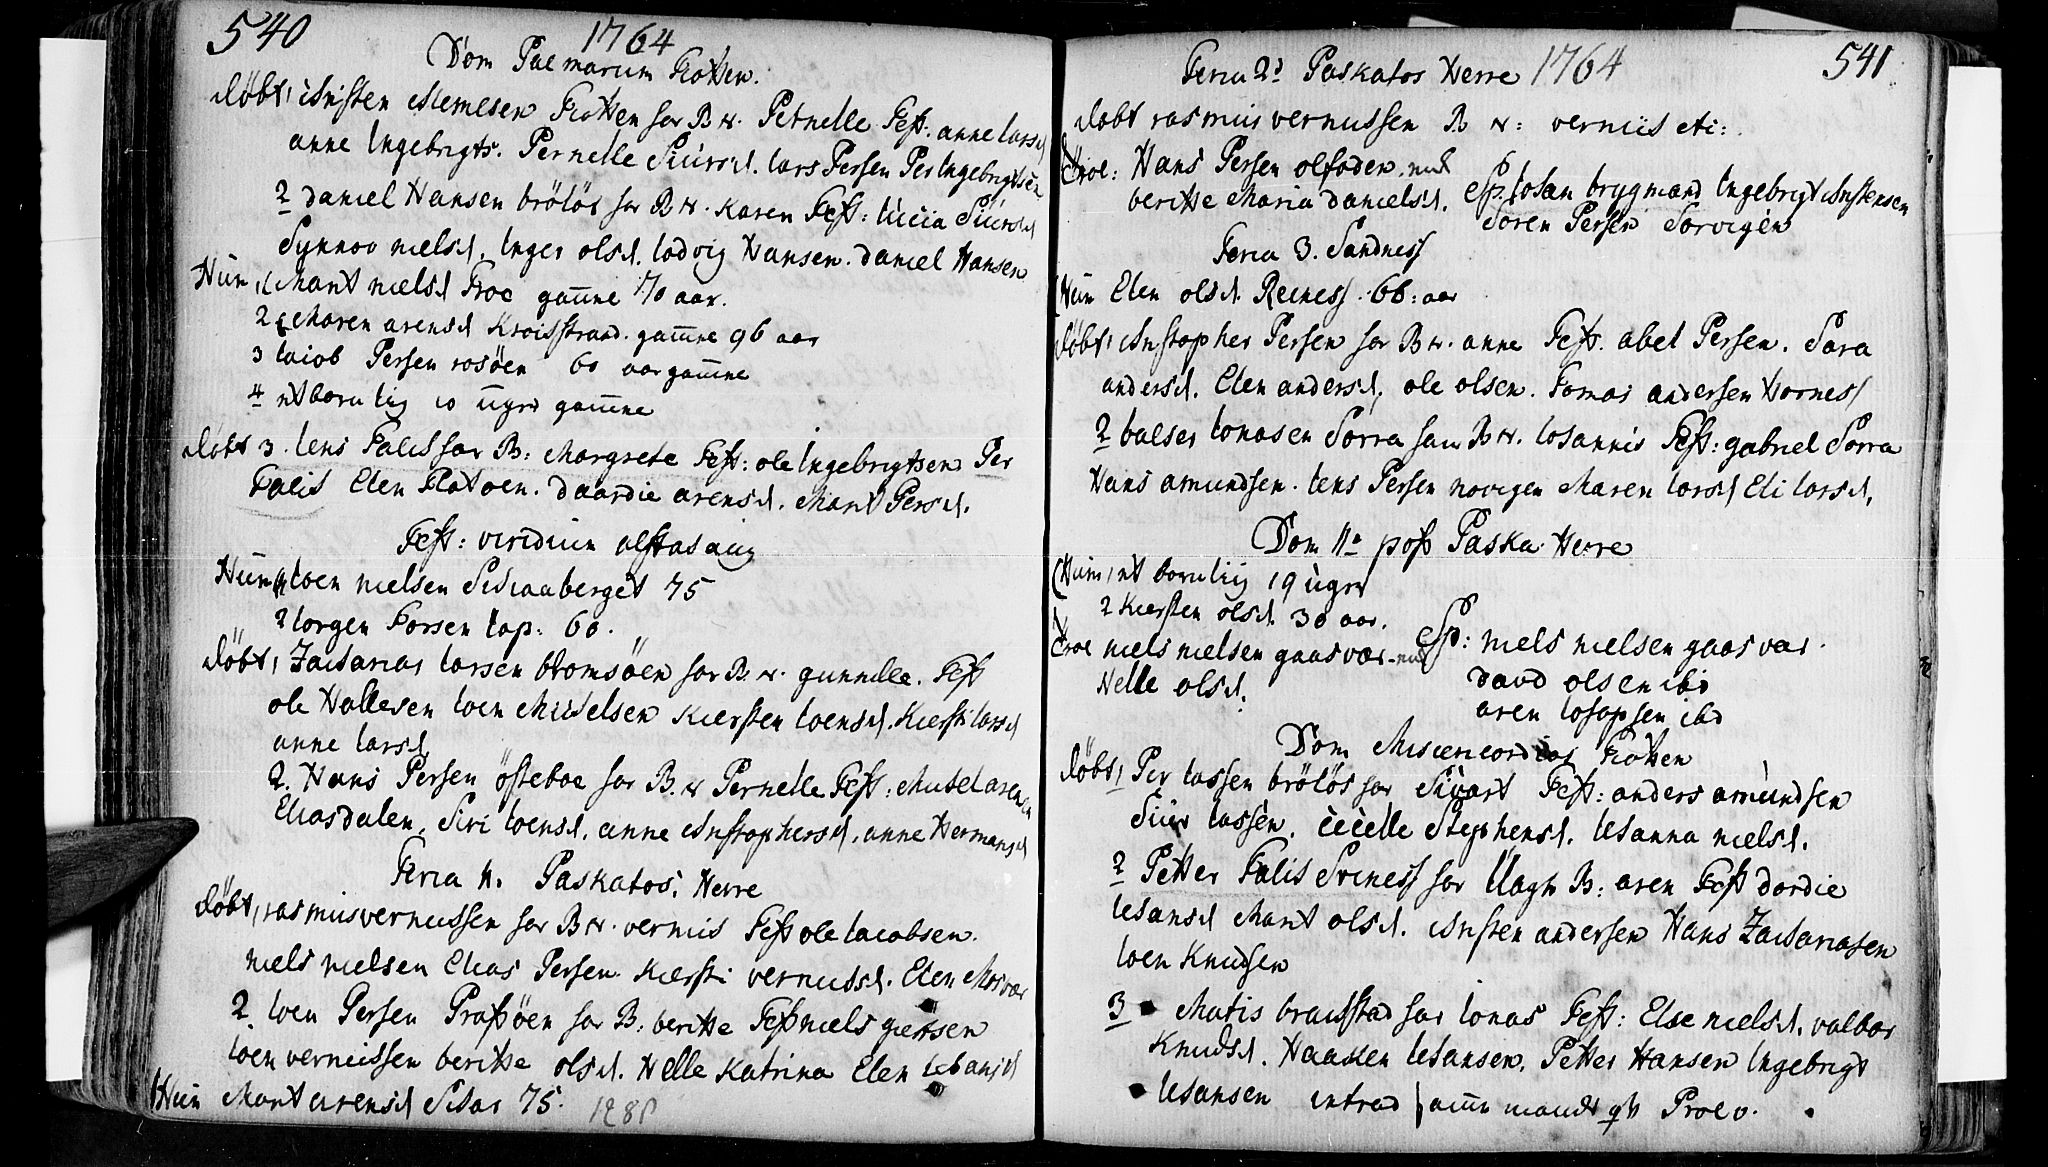 540
1764
Dom Palmarum Flotten.
Døbt 1 Christen Clemetsen Flotten for B N. Petnelle Test. anne larsd
anne Ingebrigts. Pernelle Siursd. lars Persen Per Ingebrigtsen
2 daniel Hansen brölös for B N. Karen Test: lucia Siursd
Synnov nielsd. Inger olsd. lodvig Hansen. daniel Hansen
Hum 1 Marit nielsd Froe gamme 70 aar.
2 Maren arensd gamme 96 aar
3 Iacob Persen rosöen 60 aar gamme
4 et barn lig 10 uger gamme
Døbt 3. Iens Falis for B: Margrete Test: ole Ingebrigtsen Per
Falis Elen Flatoen. daardie arensd. Marit Persd.
Test: viridium alstahaug
Hum 1 Ioen nielsen 75
2 Iorgen Forsen lap: 60.
Døbt 1 Zacharias larsen blomsöen for B N. gunnille. Test
ole Hallesen Ioen Michelsen Kiersten Ioensd. Kiersti larsd
anne larsd
2. Hans Persen östeboe for B. N Pernelle Test: Michel arensen
Eliasdalen. Siri Ioensd. anne Christophersd. anne Hermansd
Feria 11. Paskatos. Herre
Døbt 1 rasmus vernussen for B N. vernus Test ole Iacobsen.
niels nielsen Elias Persen. Kiersti vernusd. Elen
2 Ioen Persen Prastöen for B: beritte Test niels
Ioen vernussen beritte olsd. Nelle Katrina Elen
Hum Marit arensd 75.
541
Feria 2d Paskatos Herre 1764
Døbt rasmus vernussen B N: vernus
Troe: Hans Persen olfoden. med
beritte Maria danielsd.
Sp. Iohan brygmand Ingebrigt Christensen
Sören Persen Sorvigen
Feria 3. Sandness
Hum Elen olsd. Reiness. 66: aar
Døbt 1 Christopher Persen for B N. anne Test. abel Persen. Sara
andersd. Elen andersd. ole olsen. Tomas andersen Horness
2 balser Ionasen Sorra for B N. Iohannis Test: gabriel Sorra
Hans amundsen. Iens Persen novigen Maren larsd Eli larsd.
Dom 1a post Paska Herre
Hum 1 et barn lig 19 uger
2 Kiersten olsd. 30 aar.
Troe niels nielsen gaasvær. med
Nelle olsd.
Sp: niels nielsen gaasvar.
david olsen ibid
aren Iosapsen ibd
Dom Misericordias Flotten
Døbt 1 Per lassen brölös for Sivart Test: anders amundsen
Siur lassen. Cecelle Stephensd. Iohanna nielsd.
2 Petter Falis for B: aren Test dordie
Iohansd Marit olsd. Christen andersen Hans Zachariasen
Ioen Knudsen
3 Matis for Ionas Test: Else nielsd. valbor
Knudsd. Haaken Iohansen. Petter Hansen Ingebrigt
Iohansen